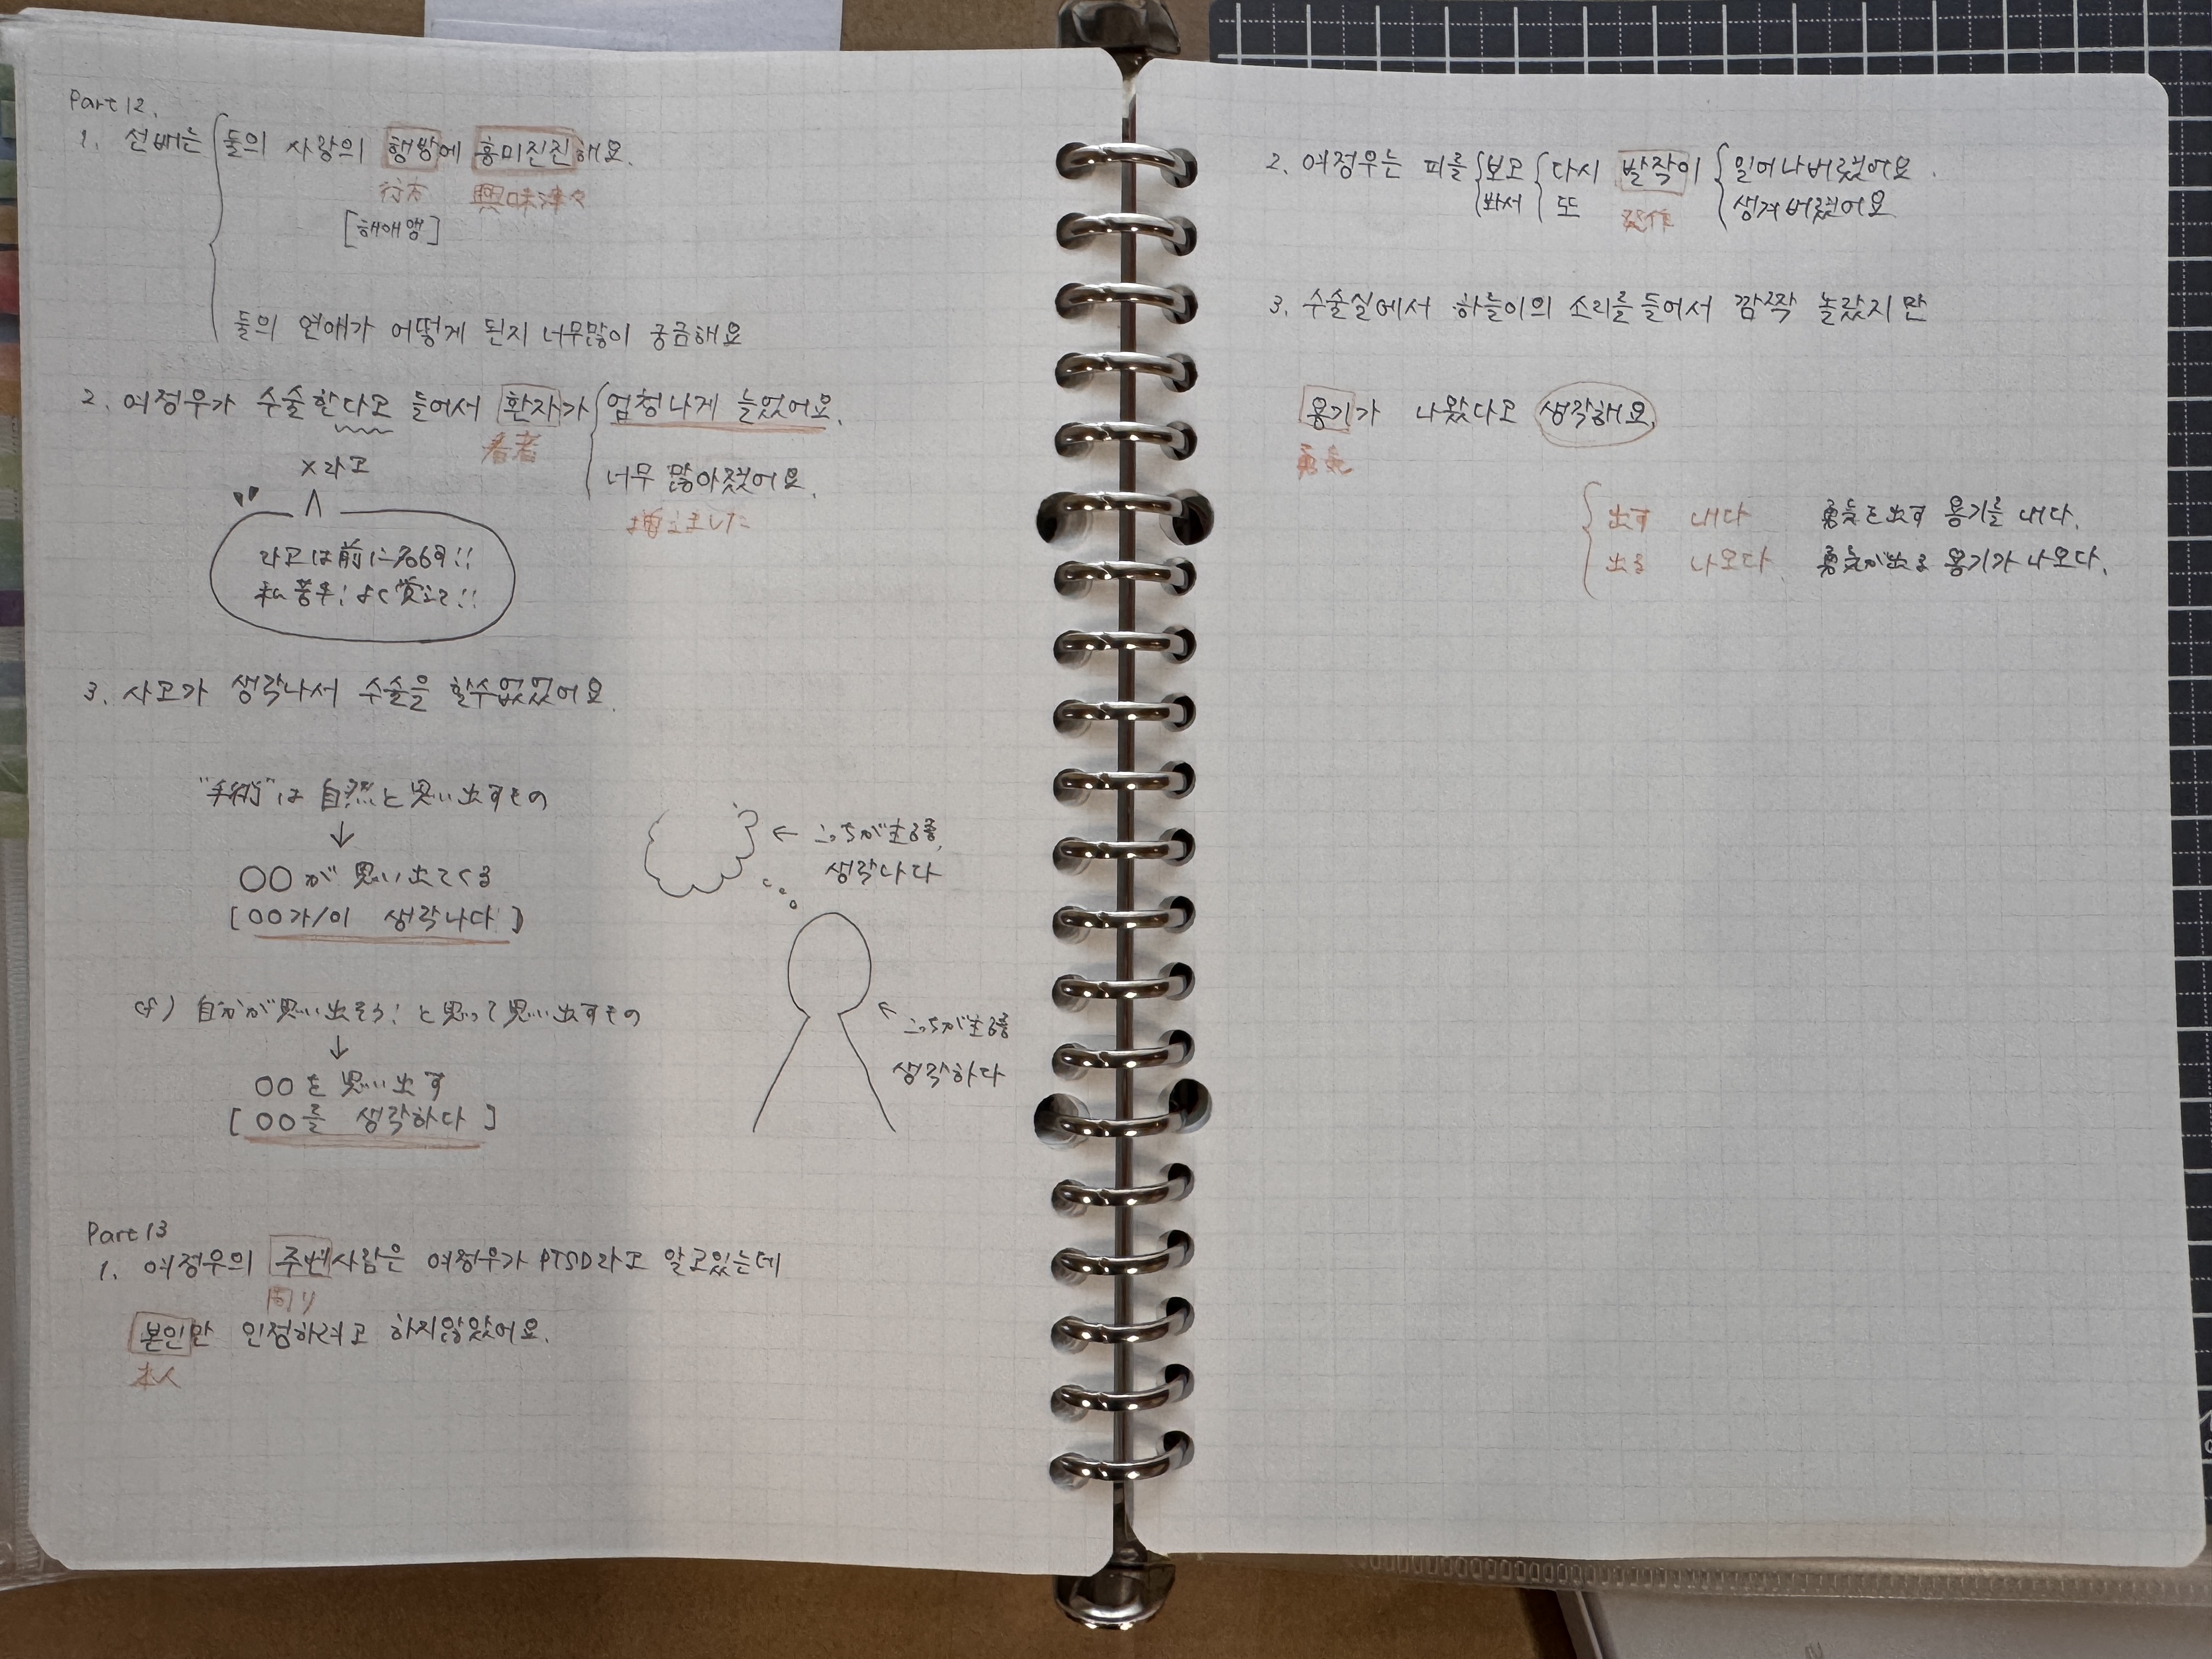 Part 12.
1. 선배는 둘의 사랑의 행방에 흥미진진해요.
行方 興味津々
[해애앵]
둘의 연애가 어떻게 된지 너무많이 궁금해요
2. 여정우가 수술한다고 들어서 환자가 엄청나게 늘었어요.
患者
x라고
너무 많아졌어요.
増えました
라고は前に名詞!!
私苦手!よく覚えて!!
3. 사고가 생각나서 수술을 할수없었어요.
"手術"は自然と思い出すもの
↓
○○が思い出てくる
[○○가/이 생각나다]
← こっちが主語,
생각나다
cf) 自分が思い出そう!と思って思い出すもの
↓
○○を思い出す
[○○를 생각하다]
こっちが主語
생각하다
Part 13
1. 여정우의 주변사람은 여정우가 PTSD라고 알고있는데
周り
본인만 인정하려고 하지않았어요.
本人
2. 여정우는 피를 보고 다시 발작이 일어나버렸어요.
봐서 또 発作 생겨버렸어요
3. 수술실에서 하늘이의 소리를 들어서 깜짝 놀랐지만
용기가 나왔다고 생각해요.
勇気
出す 내다 勇気を出す 용기를 내다.
出る 나오다. 勇気が出る 용기가 나오다.